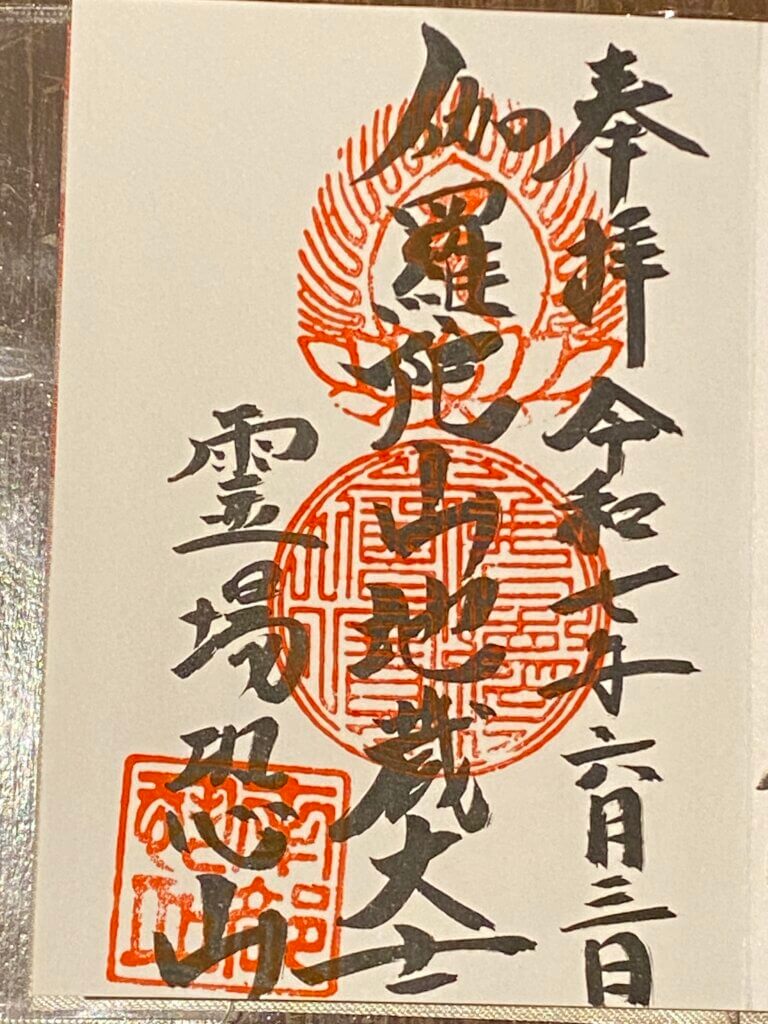 奉拝 令和七年六月三日
伽羅陀山地蔵大士
霊場恐山